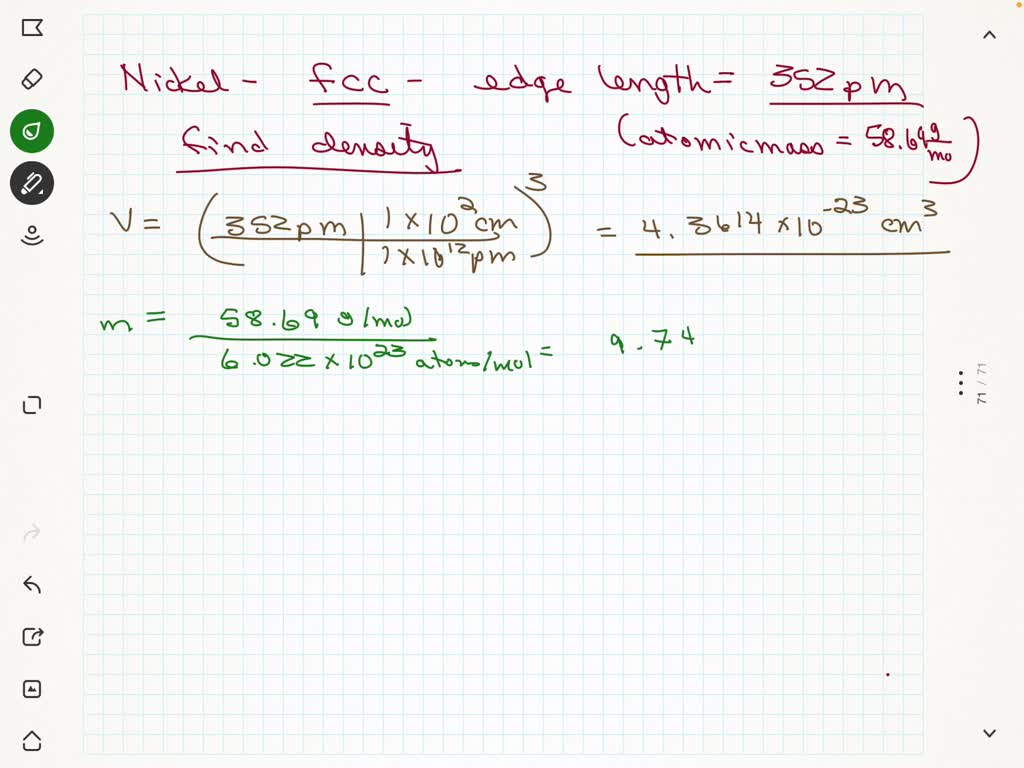 Nickel - fcc - edge length = 352 pm
find density (atomic mass = 58.69 g/mo)
V = (352 pm | 1 × 10² cm / 1 × 10¹² pm)³ = 4.3614 × 10⁻²³ cm³
m = 58.69 g/mol / 6.022 × 10²³ atoms/mol = 9.74
71 / 71